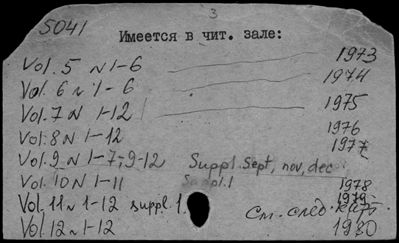 3
5041
Имеется в чит. зале:
Vol. 5 N 1-6 1973
Vol. 6 N 1-6 1974
Vol. 7 N 1-12 1975
Vol. 8 N 1-12 1976
Vol. 9 N 1-7, 9-12 Suppl. Sept, nov, dec 1977
Vol. 10 N 1-11 Suppl. 1 1978
Vol. 11 N 1-12 suppl. 1. 1979
Vol. 12 N 1-12 См. след. 1980